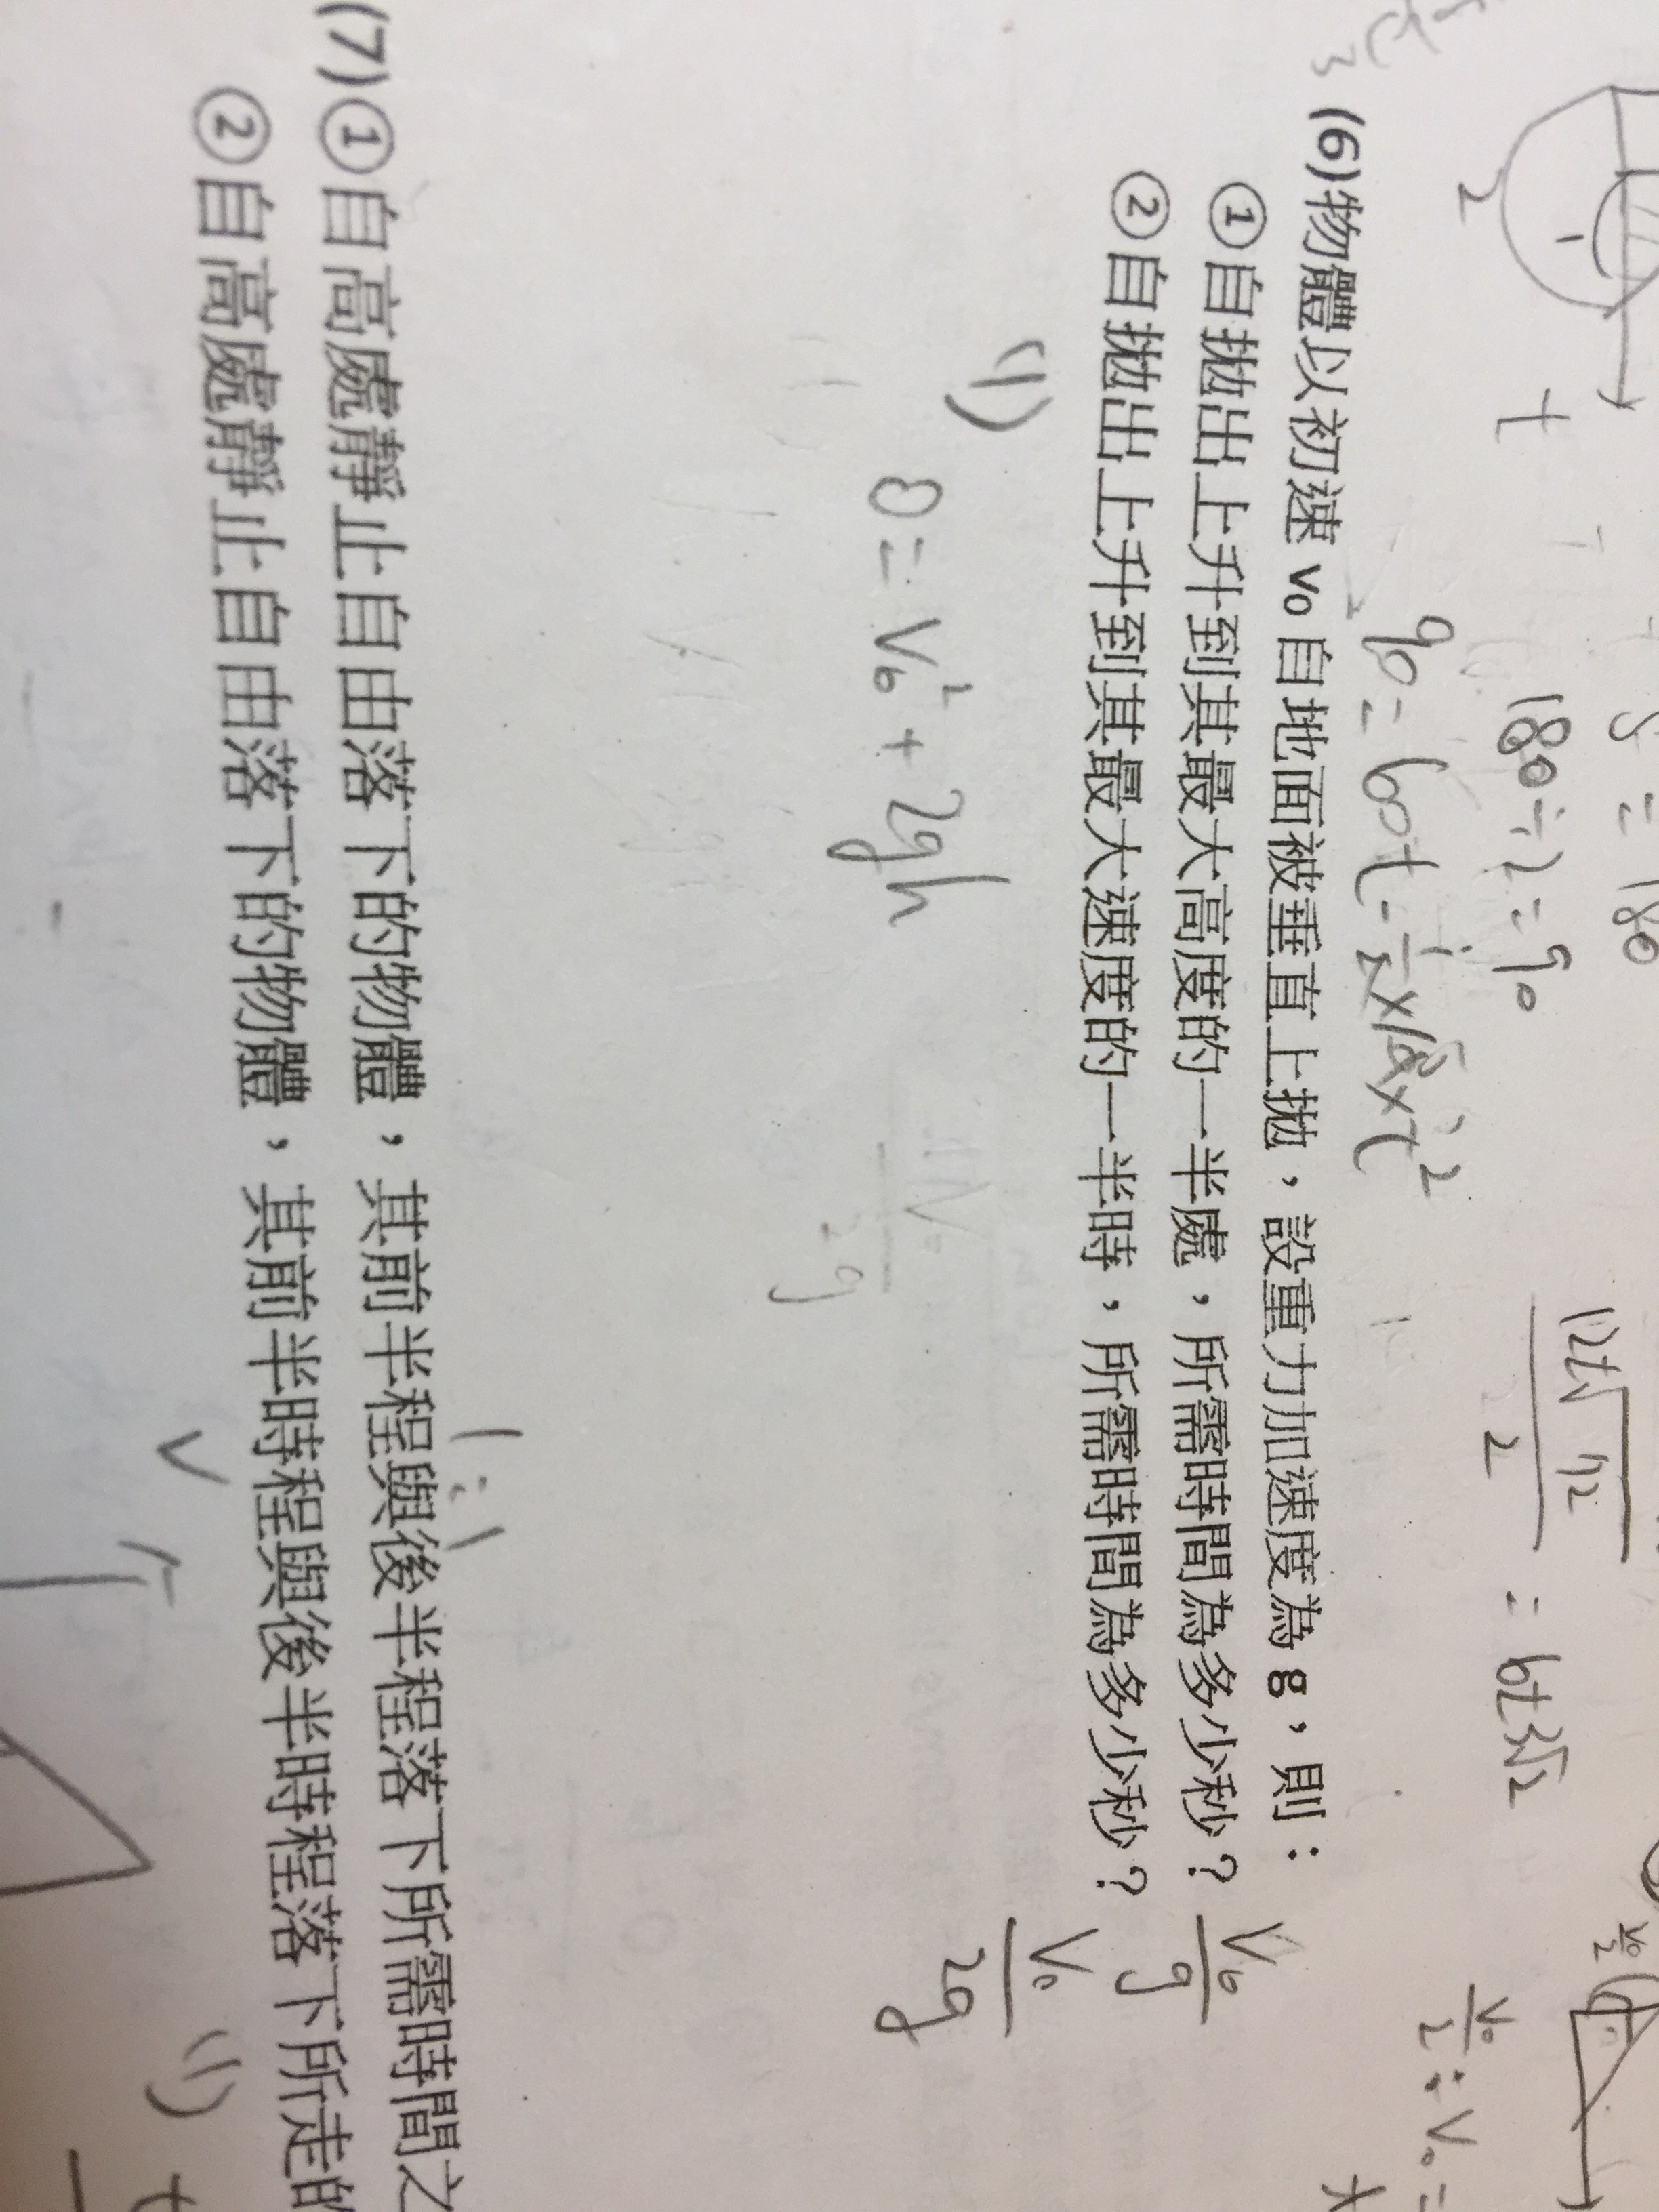 S = 180
180÷2 = 90
90 = 60t - 
= 6±3√2
(6)物體以初速 v₀ 自地面被垂直上拋，設重力加速度為 g，則：
①自拋出上升到其最大高度的一半處，所需時間為多少秒？
V₀/g
②自拋出上升到其最大速度的一半時，所需時間為多少秒？
V₀/2g
(1)
0 = V₀² + 2gh
1:1
(7)①自高處靜止自由落下的物體，其前半程與後半程落下所需時間之
②自高處靜止自由落下的物體，其前半時程與後半時程落下所走的
V
(1)